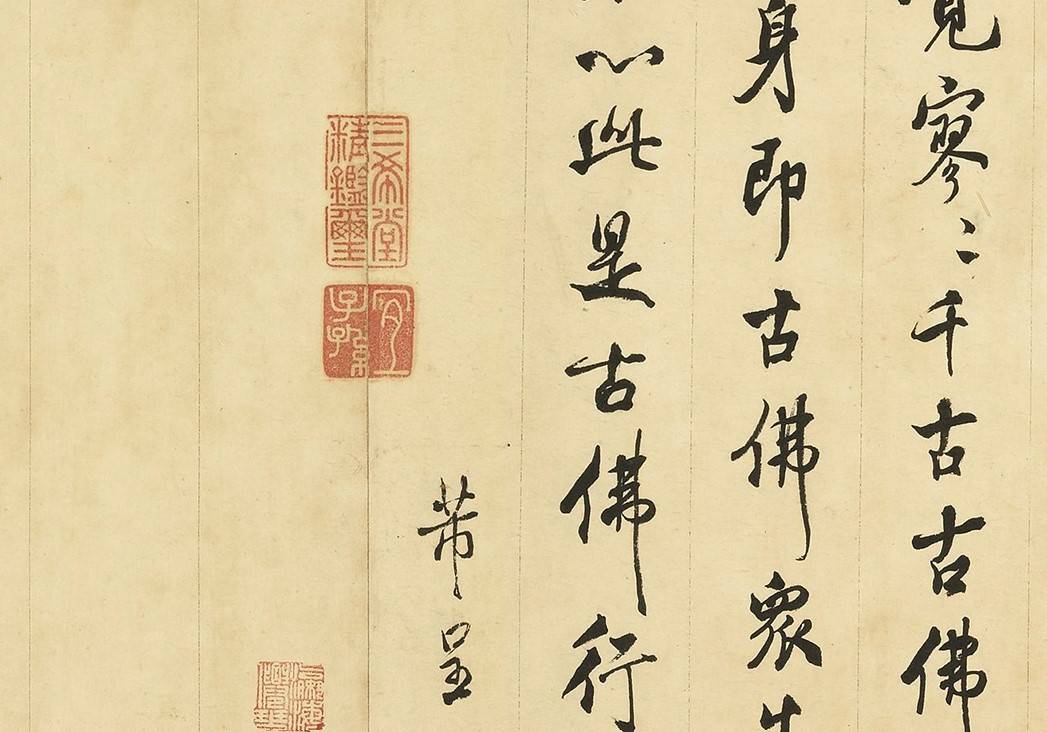 寥〻千古古佛
身即古佛眾生
心此是古佛行
芾呈
三希堂精鑑璽
宜子孫